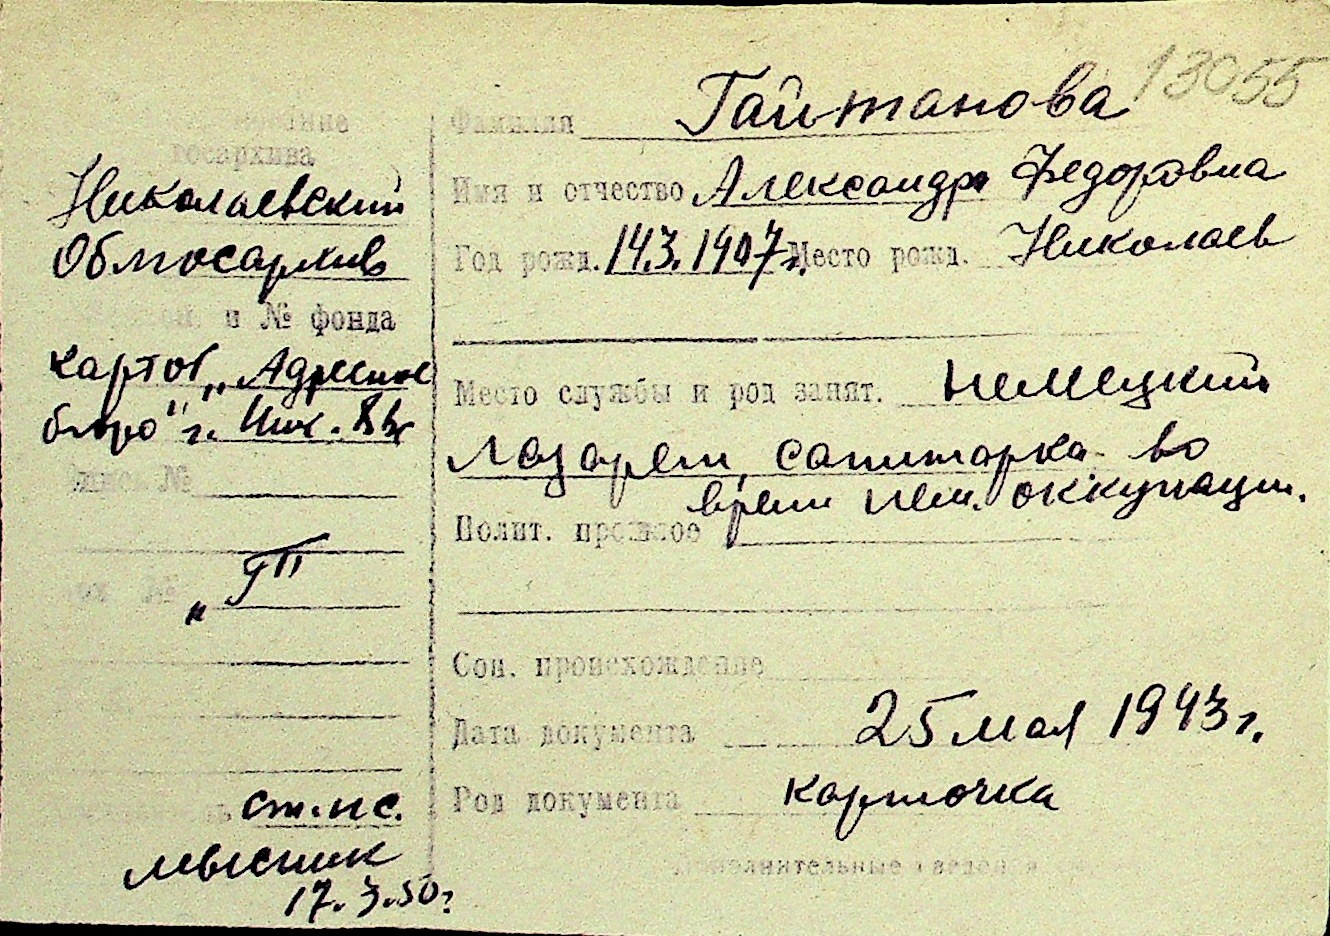 13055
госархива
Николаевский
Облгосархив
и № фонда
картот. "Адресное
бюро" г. Ник.
№
№
"ГП
ст. н с.
17. 3. 50 г.
Фамилия Гайтанова
Имя и отчество Александра Федоровна
Год рожд. 14.3.1907 г. Место рожд. Николаев
Место службы и род занят. немецкий
лазарет, санитарка во
время нем. оккупации.
Полит. прошлое
Соц. происхождение
Дата документа 25 мая 1943 г.
Род документа карточка
Дополнительные сведения